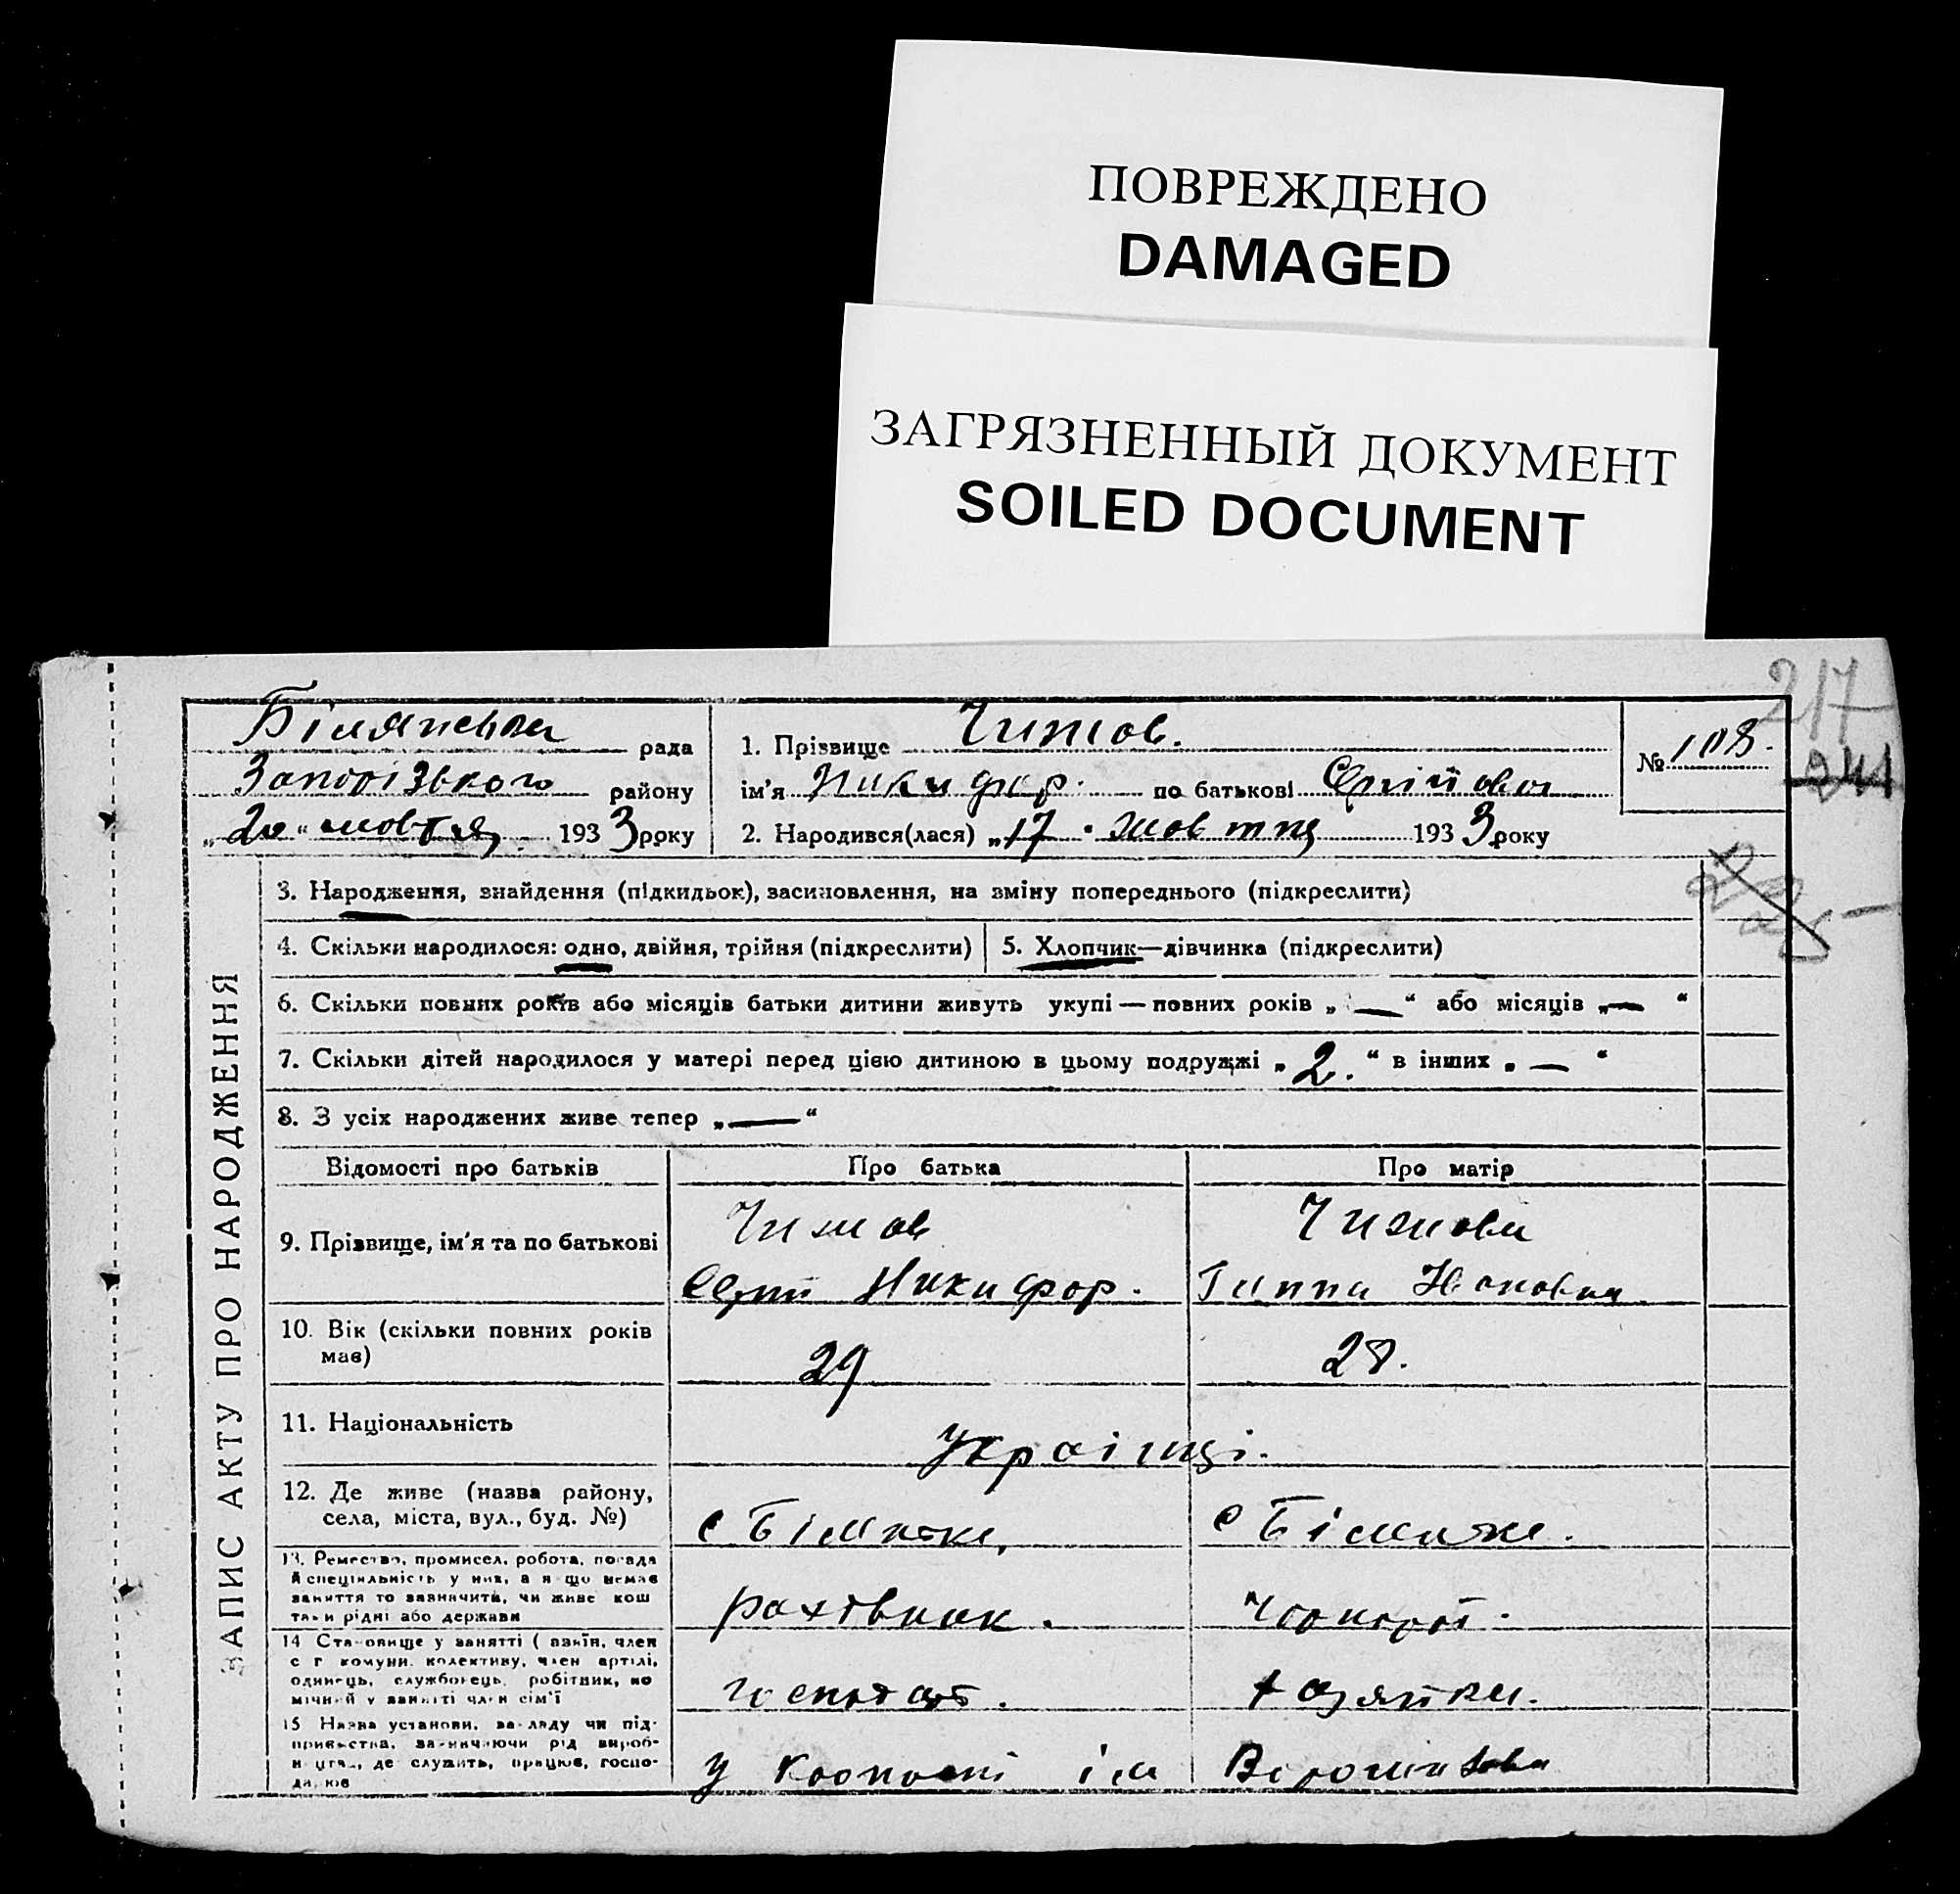 ПОВРЕЖДЕНО
DAMAGED
ЗАГРЯЗНЕННЫЙ ДОКУМЕНТ
SOILED DOCUMENT
217
241
рада
Запорізького району
„20“ жовтня 1933 року
1. Прізвище Чижов.
ім'я Никифор по батькові
2. Народився(лася) „17“ жовтня 1933 року
№ 108.
ЗАПИС АКТУ ПРО НАРОДЖЕННЯ
3. Народження, знайдення (підкидьок), засиновлення, на зміну попереднього (підкреслити)
4. Скільки народилося: одно, двійня, трійня (підкреслити)
5. Хлопчик—дівчинка (підкреслити)
6. Скільки повних років або місяців батьки дитини живуть укупі — повних років „—“ або місяців „—“
7. Скільки дітей народилося у матері перед цією дитиною в цьому подружжі „2.“ в інших „—“
8. З усіх народжених живе тепер „—“
Відомості про батьків
Про батька
Про матір
9. Прізвище, ім'я та по батькові
Чижов
Никифор.
Чижова
Ганна
10. Вік (скільки повних років
має)
29
28.
11. Національність
Українці.
12. Де живе (назва району,
села, міста, вул., буд. №)
13. Ремество, промисел, робота, посада
й спеціяльність у них, а якщо немає
заняття то зазначити, чи живе кош
тами рідні або держави
рахівник.
чорнороб.
14 Становище у занятті (хазяїн, член
с г комуни, колективу, член артілі,
одинець, службовець, робітник, по
мічний у занятті член сім'ї
хазяйки.
15 Назва установи, закладу чи під-
приємства, зазначаючи рід вироб-
ництва, де служить, працює, госпо-
дарює
у ім Ворошилова